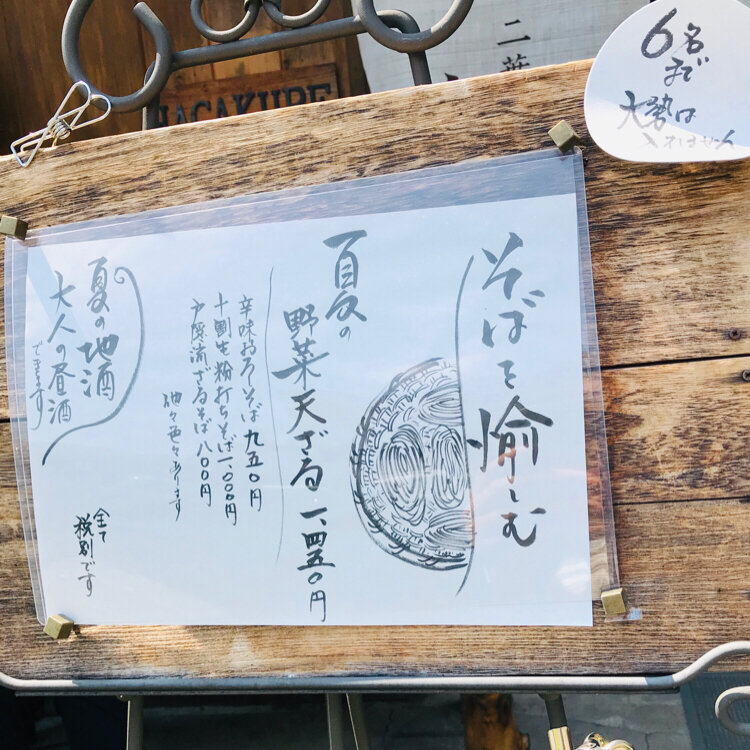 そばを愉しむ
夏の
野菜天ざる 一、四五〇円
辛味おろしそば 九五〇円
十割生粉打ちそば 一、〇〇〇円
戸隠流ざるそば 八〇〇円
他々色々あります
夏の地酒
大人の昼酒
できます
全て
税別です
6名
まで
大勢は
入れません
二葉
HAGAKURE